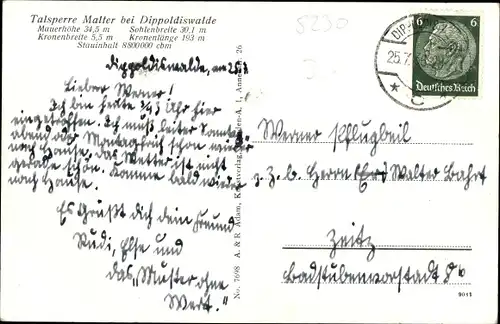 Talsperre Malter bei Dippoldiswalde
Mauerhöhe 34,5 m Sohlenbreite 30,1 m
Kronenbreite 5,5 m Kronenlänge 193 m
Stauinhalt 8800000 cbm
5230
Dippoldiswalde, am 25.
Lieber Werner!
Ich bin heute 1/2 3 Uhr hier
eingetroffen. Ich muß leider Sonntag
abend oder Montagfrüh schon wieder
nach Hause. Das Wetter ist nicht
gerade schön. Komme bald wieder
nach Hause.
Es Grüßt dich dein Freund
Rudi, Else und
das "Muster ohne
Wert."
No. 7698 A. & R. Adam, Kunstverlag, Dresden-A. 1, 26
6 6
Deutsches Reich
25.7.
* C *
Werner Pflugbeil
z. Z. b. Herrn Walter Bahrt
Zeitz
Badstubenvorstadt
9011